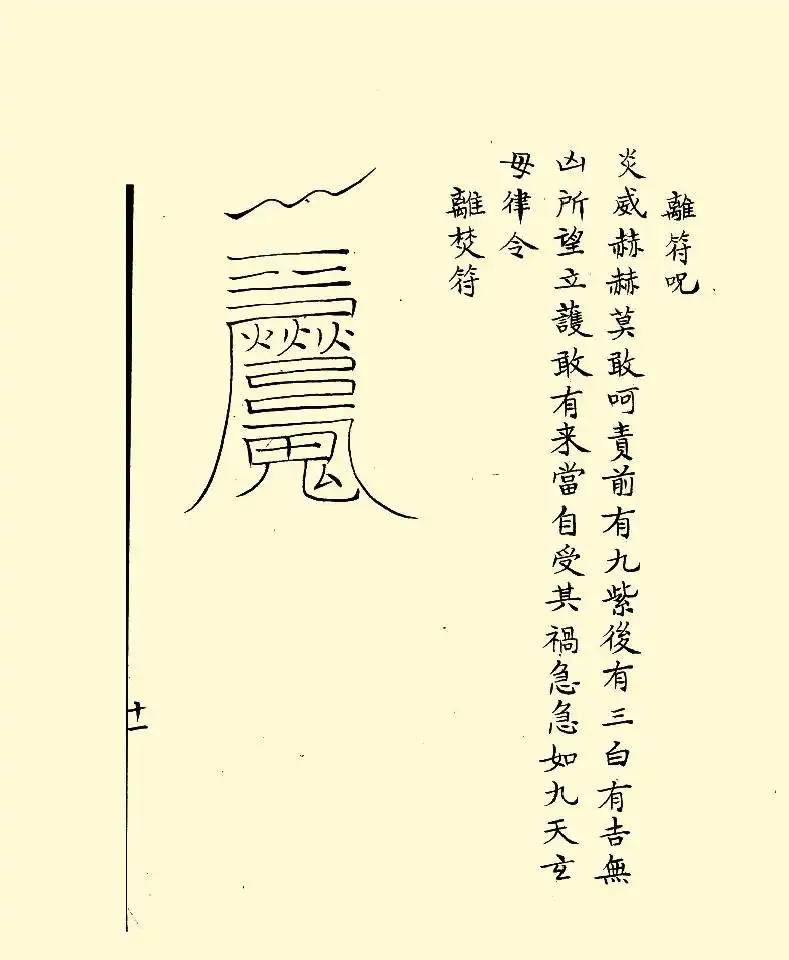 離符呪
炎威赫赫莫敢呵責前有九紫後有三白有吉無
凶所望立護敢有来當自受其禍急急如九天玄
母律令
離焚符
十一